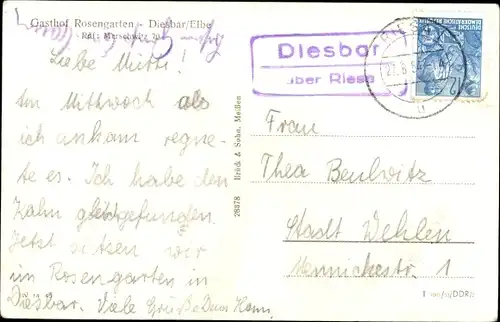 Gasthof Rosengarten - Diesbar/Elbe
Ruf: Merschwitz
Liebe Mutti!
Am Mittwoch als
ich ankam regne-
te es. Ich habe den
Kahn gleich gefunden.
Jetzt sitzen wir
im Rosengarten in
Diesbar. Viele Grüße Dein Hann.
28378 Brück & Sohn, Meißen
Diesbar
über Riesa
DEUTSCHE
Frau
Thea Beulwitz
Stadt Wehlen
Mennickestr. 1